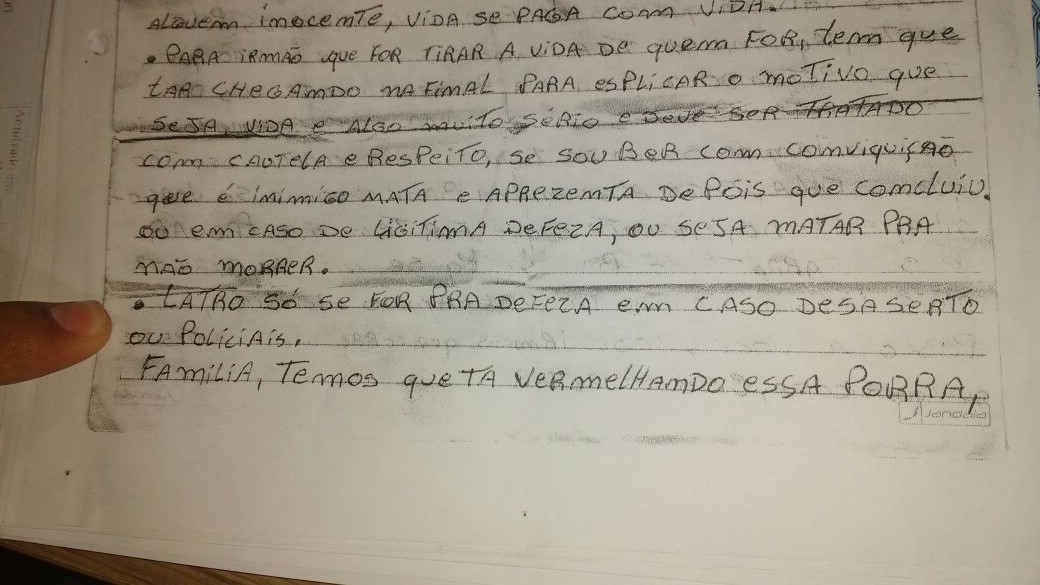 Alguem imocemte, viDA se PAGA com viDA.
• PARA iRMão que FOR TIRAR A ViDA De quem FOR, tem que
tAR CHegAMDO NA FiMAL PARA esPLiCAR o moTiVO que
SeJA, ViDA e ALgo muiTo Sério e Deve SeR TRATADO
com CAUTeLA e Respeito, se souBeR com comviquição
que é imimigo MATA e APRezemTA DePois que comcluiu.
ou em CASO De LigiTimA DeFezA, ou SeJA MATAR PRA
não moRReR.
• LATRO Só se FOR PRA DeFezA em CASO DeSASeRTO
ou PoLiCiAis.
FAMiLiA, Temos que TA veRmelHAmDo essA PoRRA,
Jandaia